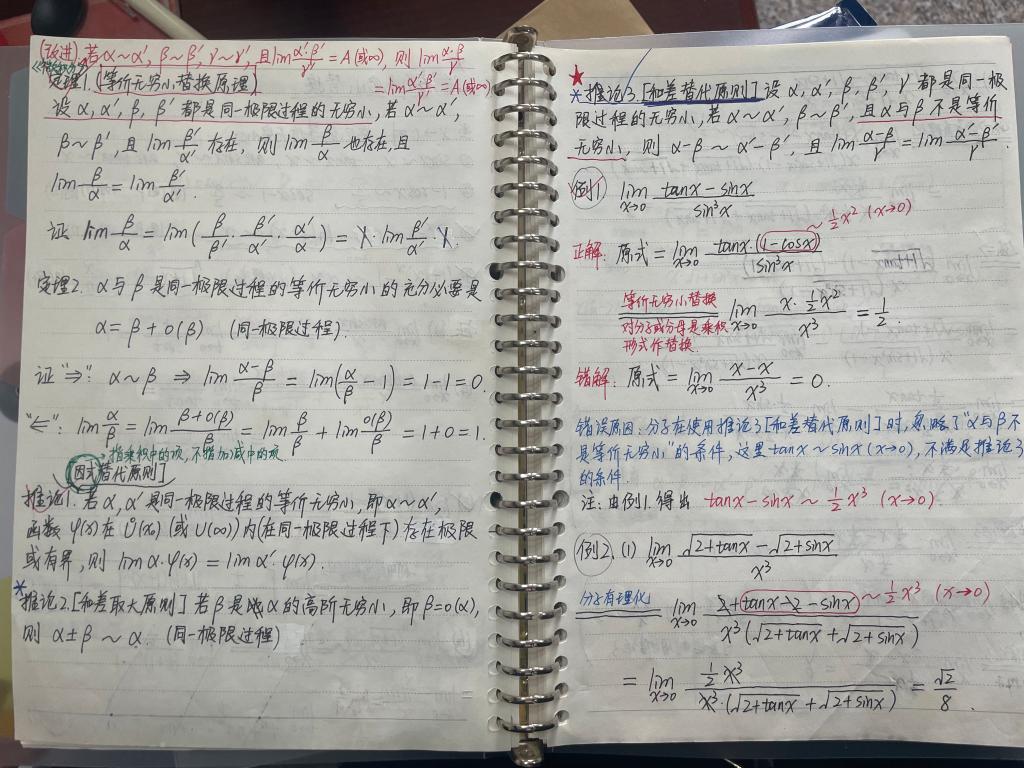 (改进) 若α~α′, β~β′, γ~γ′, 且lim α′·β′/γ′ = A (或∞), 则 lim α·β/γ
= lim α′·β′/γ′ = A (或∞)
定理1. (等价无穷小替换原理)
设 α, α′, β, β′ 都是同一极限过程的无穷小, 若 α~α′,
β~β′, 且 lim β′/α′ 存在, 则 lim β/α 也存在, 且
lim β/α = lim β′/α′.
证 lim β/α = lim(β/β′ · β′/α′ · α′/α) = 1·lim β′/α′·1.
定理2. α与β是同一极限过程的等价无穷小的充分必要是
α = β + o(β) (同一极限过程).
证 "⇒": α~β ⇒ lim (α-β)/β = lim(α/β - 1) = 1-1 = 0.
"⇐": lim α/β = lim (β+o(β))/β = lim β/β + lim o(β)/β = 1+0 = 1.
指乘积中的项, 不指加减中的项
因式替代原则]
推论1. 若α, α′是同一极限过程的等价无穷小, 即α~α′,
函数 φ(x) 在 Ů(x₀) (或 U(∞)) 内(在同一极限过程下) 存在极限
或有界, 则 lim α·φ(x) = lim α′·φ(x).
*推论2. [和差取大原则] 若β是α的高阶无穷小, 即β=o(α),
则 α±β ~ α. (同一极限过程)
★
*推论3. [和差替代原则] 设 α, α′, β, β′, γ 都是同一极
限过程的无穷小, 若 α~α′, β~β′, 且α与β不是等价
无穷小, 则 α-β ~ α′-β′, 且 lim (α-β)/γ = lim (α′-β′)/γ.
例1. lim x→0 (tanx - sinx)/sin³x
正解: 原式 = lim x→0 tanx·(1-cosx)/sin³x ~ ½x² (x→0)
等价无穷小替换 lim x→0 x·½x²/x³ = 1/2.
对分子或分母是乘积
形式作替换.
错解: 原式 = lim x→0 (x-x)/x³ = 0.
错误原因: 分子在使用推论3 [和差替代原则] 时, 忽略了"α与β不
是等价无穷小"的条件, 这里 tanx~sinx (x→0), 不满足推论3
的条件.
注: 由例1. 得出 tanx - sinx ~ ½x³ (x→0).
例2. (1) lim x→0 (√(2+tanx) - √(2+sinx))/x³
分子有理化 lim x→0 (2+tanx-2-sinx)/(x³(√(2+tanx)+√(2+sinx))) ~ ½x³ (x→0)
= lim x→0 ½x³/(x³·(√(2+tanx)+√(2+sinx))) = √2/8.